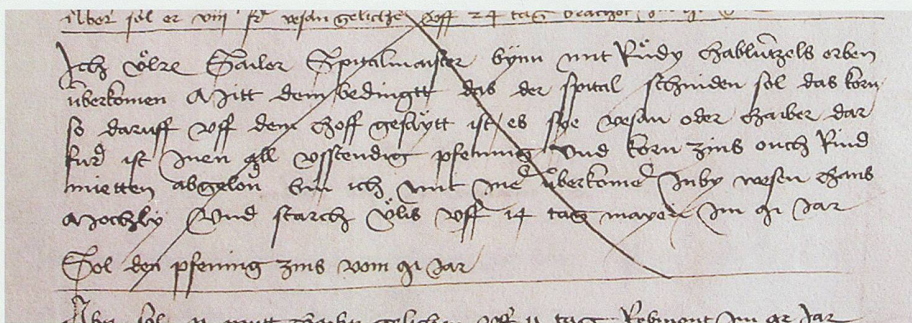 über sol er viii fr vesan geliche uff 24 tag
Ich Ölre Sailer Spitalmaister bynn mit Rüdy Hablützels erben
überkomen Mitt dem bedingtt das der spital schniden sol das korn
so daruff uff dem Hoff gesäytt ist es sye vesan oder haber dar
fur ist Inen all usstendig pfennig Und korn zins ouch Rind
mietten abgelon bin ich mit Ine überkome Inby wesen Hans
Mochly Und starch Ülis uff 14 tag mayen Im 91 Jar
Sol den pfennig zins vom 91 Jar
sol geliche uff 11 tag Im Jar